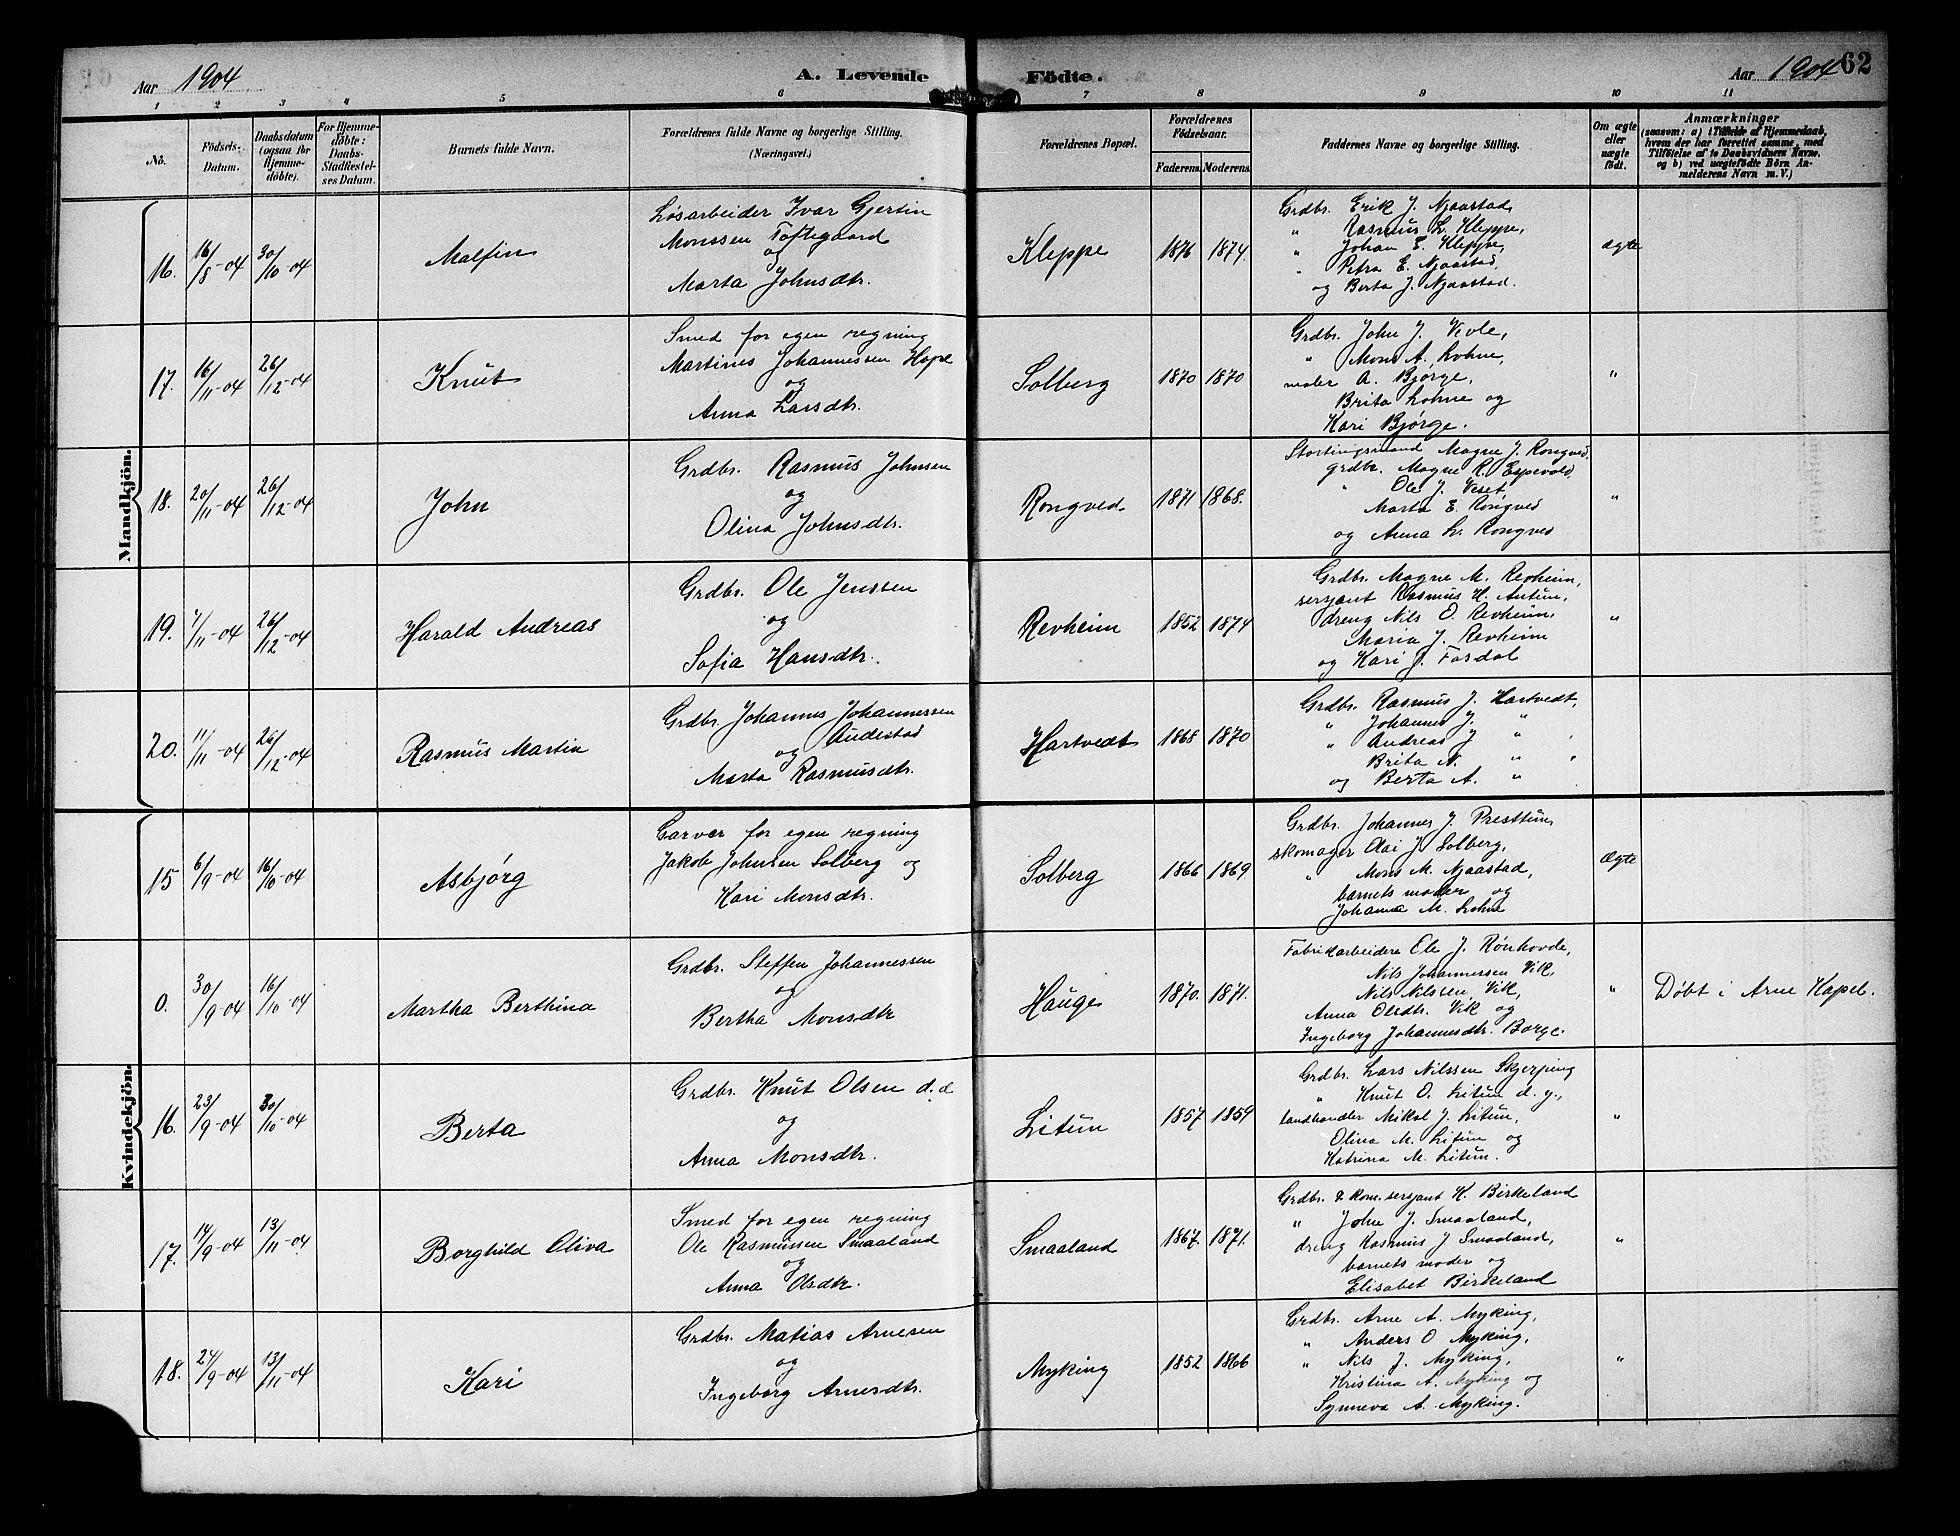 Aar 1904
A. Levende Födte.
Aar 1904 62
1 2 3 4 5 6 7 8 9 10 11
No.
Födsels-Datum.
Daabsdatum (ogsaa for Hjemme-döbte).
For Hjemme-döbte: Daabs-Stadfæstel-ses Datum.
Barnets fulde Navn.
Forældrenes fulde Navne og borgerlige Stilling. (Næringsvei.)
Forældrenes Bopæl.
Forældrenes Födselsaar.
Faderens. Moderens.
Faddernes Navne og borgerlige Stilling.
Om ægte eller uægte födt.
Anmærkninger
(saasom: a) i Tilfælde af Hjemmedaab, hvem der har forrettet samme, med Tilföielse af to Daabsvidners Navne, og b) ved uægtefödte Börn An-melderens Navn m. V.)
Mandkjön.
16. 16/8-04 30/10-04 Malfin
Løsarbeider Ivar Gjertin
Monssen Toftegaard
og
Marta Johnsdtr.
Kleppe 1876 1874.
Grdbr. Erik J. Njaastad,
" Rasmus L. Kleppe,
" Johan E. Kleppe,
" Petra E. Njaastad,
og Berta J. Njaastad.
ægte
17. 16/11-04 26/12-04 Knut
Smed for egen regning
Martines Johannessen Hope
og
Anna Larsdtr.
Solberg 1870 1870
Grdbr. John J. Vevle,
" Mons A. Lohne,
moder A. Bjørge,
Brita Lohne og
Kari Bjørge.
"
18. 20/11-04 26/12-04 John
Grdbr. Rasmus Johnsen
og
Olina Johnsdtr.
Rongved 1871 1868.
Stortingsmand Magne J. Rongved,
grdbr. Magne R. Espevold,
" Ole J. Veset,
Marta E. Rongved
og Anna L. Rongved
"
19. 7/11-04 26/12-04 Harald Andreas
Grdbr. Ole Jenssen
og
Sofia Hansdtr.
Revheim 1852 1874
Grdbr. Magne M. Revheim,
sersjant Rasmus H. Antun,
dreng Nils O. Revheim,
Maria J. Revheim
og Kari J. Fosdal
"
20. 11/11-04 26/12-04 Rasmus Martin
Grdbr. Johannes Johannessen
og Audestad
Marta Rasmusdtr.
Hartvedt 1868 1870
Grdbr. Rasmus J. Hartvedt,
" Johannes J. "
" Andreas J "
Brita N. "
og Berta A. "
Kvindekjön.
15 6/9-04 16/10-04 Asbjørg
Garver for egen regning
Jakob Johnsen Solberg og
Kari Monsdtr.
Solberg 1866 1869
Grdbr. Johannes J. Presttun,
skomager Olai J. Solberg,
" Mons M. Njaastad,
barnets moder og
Johanna M. Lohne
Ægte
0. 30/9-04 16/10-04 Martha Berthina
Grdbr. Steffen Johannessen
og
Bertha Monsdtr
Hauge 1870. 1871.
Fabrikarbeidere Ole J. Rønhovde,
Nils Johannessen Vik,
Nils Nilssen Vik,
Anna Olsdtr. Vik og
Ingeborg Johannesdtr. Borge.
" Døbt i Arne Kapel.
16. 23/9-04 30/10-04 Berta
Grdbr. Knut Olsen d.e
og
Anna Monsdtr.
Litun 1857. 1859
Grdbr. Lars Nilssen Skjerping
" Knut O. Litun d. y.,
landhandler Mikal J. Litun,
Olina M. Litun og
Katrina M. Litun.
"
17. 14/9-04 13/11-04 Borghild Oliva
Smed for egen regning
Ole Rasmussen Smaaland
og
Anna Olsdtr.
Smaaland 1867. 1871.
Grdbr. & kom. sersjant H. Birkeland
" John J. Smaaland,
dreng Rasmus J Smaaland,
barnets moder og
Elisabet Birkeland
"
18. 24/9-04 13/11-04 Kari
Grdbr. Matias Arnesen
og
Ingeborg Arnesdtr.
Myking 1852 1866
Grdbr. Arne A. Myking,
" Anders O Myking,
" Nils J. Myking,
Kristina A. Myking og
Synneva A. Myking.
"